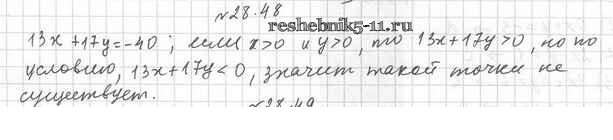 №28.48
reshebnik5-11.ru
13x+17y=-40; если x>0 и y>0, то 13x+17y>0, но по
условию, 13x+17y<0, значит такой точки не
существует.
№28.49